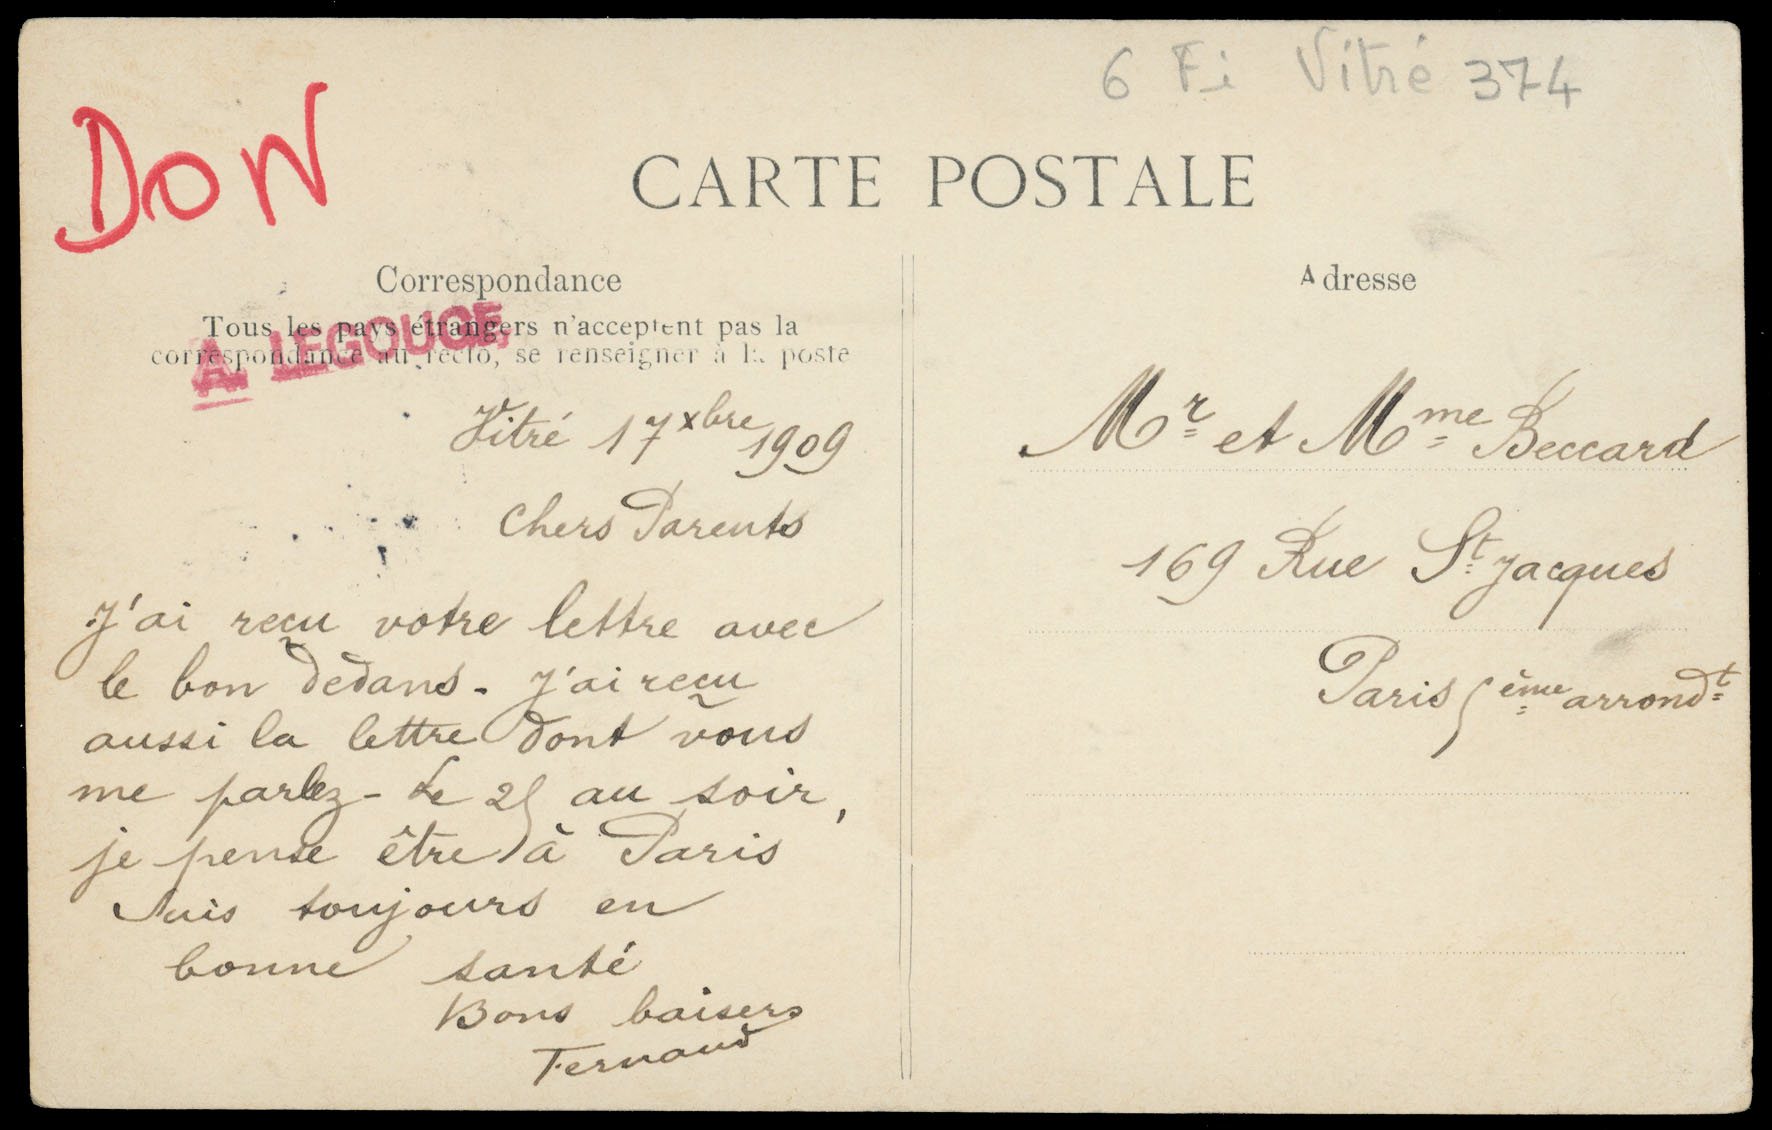 6 Fi Vitré 374
DON
CARTE POSTALE
Correspondance
Tous les pays étrangers n'acceptent pas la
correspondance au recto, se renseigner à la poste
A. LEGOUGE
Vitré 17 xbre 1909
Chers Parents
J'ai reçu votre lettre avec
le bon dedans - J'ai reçu
aussi la lettre dont vous
me parlez - Le 25 au soir,
je pense être à Paris
Suis toujours en
bonne santé
Bons baisers
Fernand
Adresse
Mr et Mme Beccard
169 Rue St Jacques
Paris 5ème arrondt